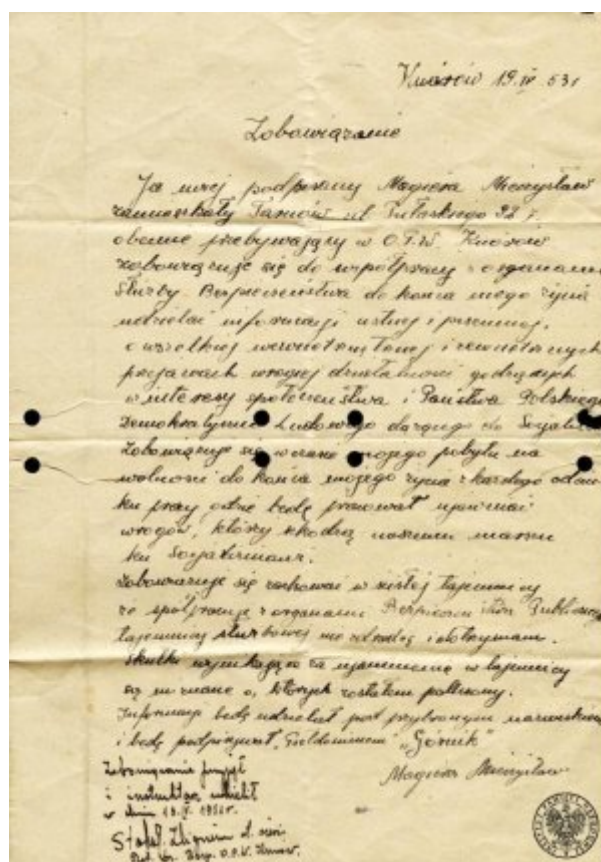 Knurów 19.IV 53r
Zobowiązanie
Ja niżej podpisany Magiera Mieczysław
zamieszkały Tarnów ul.
obecnie przebywający w O.P.W. Knurów
zobowiązuje się do współpracy z organami
Służby Bezpieczeństwa do końca mego życia
udzielać informacji ustnej i pisemnej,
o wszelkiej i zewnętrznych
przejawach wrogiej działalności godzących
w interesy społeczeństwa i Państwa Polskiego
Demokratycznie Ludowego dążącego do
Zobowiązuje się w czasie mojego pobytu na
wolności do końca mojego życia z każdego
ku pracy gdzie będę pracował ujawniać
wrogów, którzy szkodzą naszemu marszu
ku Socjalizmowi.
Zobowiązuje się zachować w ścisłej tajemnicy
że współpracuje z organami
tajemnicy służbowej nie zdradzę i dotrzymam.
Skutki wynikające za w tajemnicy
są mi znane o, których zostałem
Informacji będę udzielał pod przybranym nazwiskiem
i będę podpisywał, "Górnik"
Magiera Mieczysław
Zobowiązanie przyjął
i udzielił
w dniu
Zbigniew
O.P.W. Knurów.